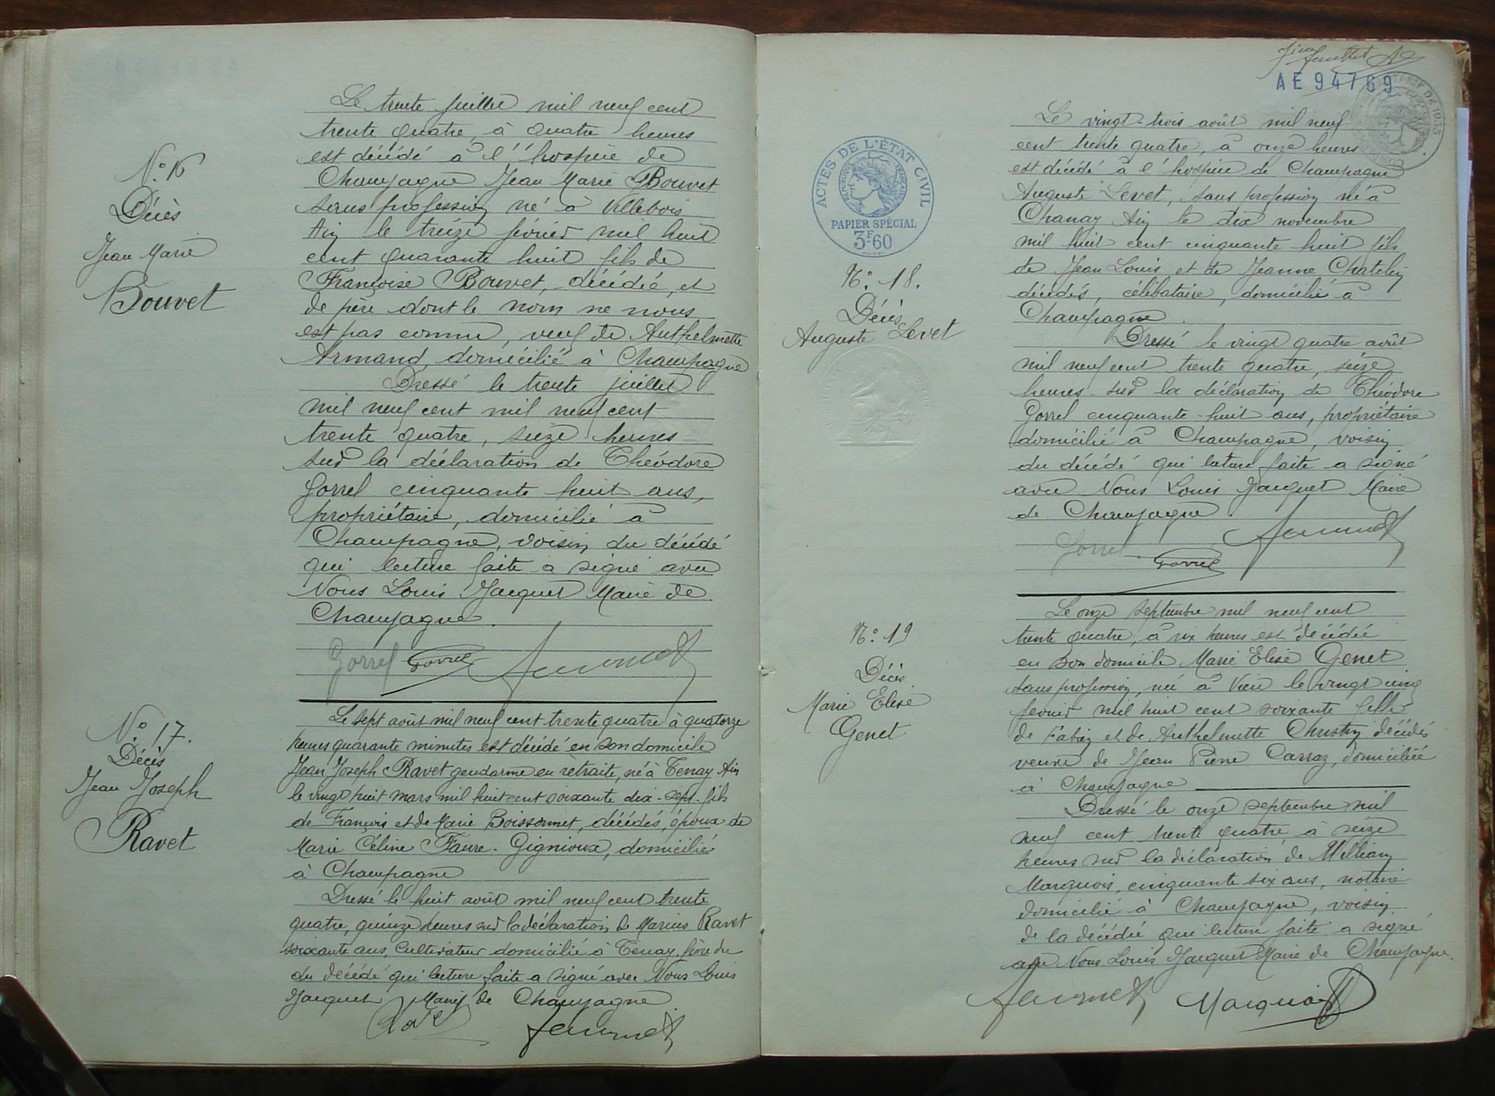 N° 16
Décès
Jean Marie
Bouvet
Le trente juillet mil neuf cent
trente quatre, à quatre heures
est décédé à l'hospice de
Champagne Jean Marie Bouvet
sans profession né à Villebois
Ain le treize février mil huit
cent quarante huit fils de
Françoise Bouvet, décédée, et
de père dont le nom ne nous
est pas connu, veuf de Anthelmette
Armand, domicilié à Champagne
Dressé le trente juillet
mil neuf cent mil neuf cent
trente quatre, seize heures
sur la déclaration de Théodore
Gorrel cinquante huit ans,
propriétaire, domicilié à
Champagne, voisin du décédé
qui lecture faite a signé avec
Nous Louis Jacquet Maire de
Champagne.
Gorrel Gorrel
N° 17.
Décès
Jean Joseph
Ravet
Le sept août mil neuf cent trente quatre à quatorze
heures quarante minutes est décédé en son domicile
Jean Joseph Ravet gendarme en retraite, né à Tenay Ain
le vingt huit mars mil huit cent soixante dix-sept fils
de François et de Marie Boissonnet, décédés, époux de
Marie Céline Favre-Gignioux, domiciliés
à Champagne
Dressé le huit août mil neuf cent trente
quatre, quinze heures sur la déclaration de Marius Ravet
soixante ans, cultivateur domicilié à Tenay, frère du
du décédé qui lecture faite a signé avec Nous Louis
Jacquet Maire de Champagne
Ravet
AE 94769
ACTES DE L'ÉTAT CIVIL
PAPIER SPÉCIAL
3F60
N° 18.
Décès
Auguste Levet
Le vingt-trois août mil neuf
cent trente quatre, à onze heures
est décédé à l'hospice de Champagne
Auguste Levet, sans profession né à
Chanay Ain le dix novembre
mil huit cent cinquante huit fils
de Jean Louis et de Jeanne Chatelin
décédés, célibataire, domicilié à
Champagne.
Dressé le vingt quatre août
mil neuf cent trente quatre, seize
heures sur la déclaration de Théodore
Gorrel cinquante-huit ans, propriétaire
domicilié à Champagne, voisin
du décédé qui lecture faite a signé
avec Nous Louis Jacquet Maire
de Champagne
Gorrel
Gorrel
N° 19
Décès
Marie Elise
Genet
Le onze septembre mil neuf cent
trente quatre, à six heures est décédée
en son domicile Marie Elise Genet
sans profession, née à Vieu le vingt cinq
février mil huit cent soixante fille
de Fabin et de Anthelmette Christin décédés
veuve de Jean Pierre Carraz, domiciliée
à Champagne
Dressé le onze septembre mil
neuf cent trente quatre à seize
heures sur la déclaration de William
Marquois, cinquante six ans, notaire
domicilié à Champagne, voisin
de la décédée qui lecture faite a signé
avec Nous Louis Jacquet Maire de Champagne.
Marquois